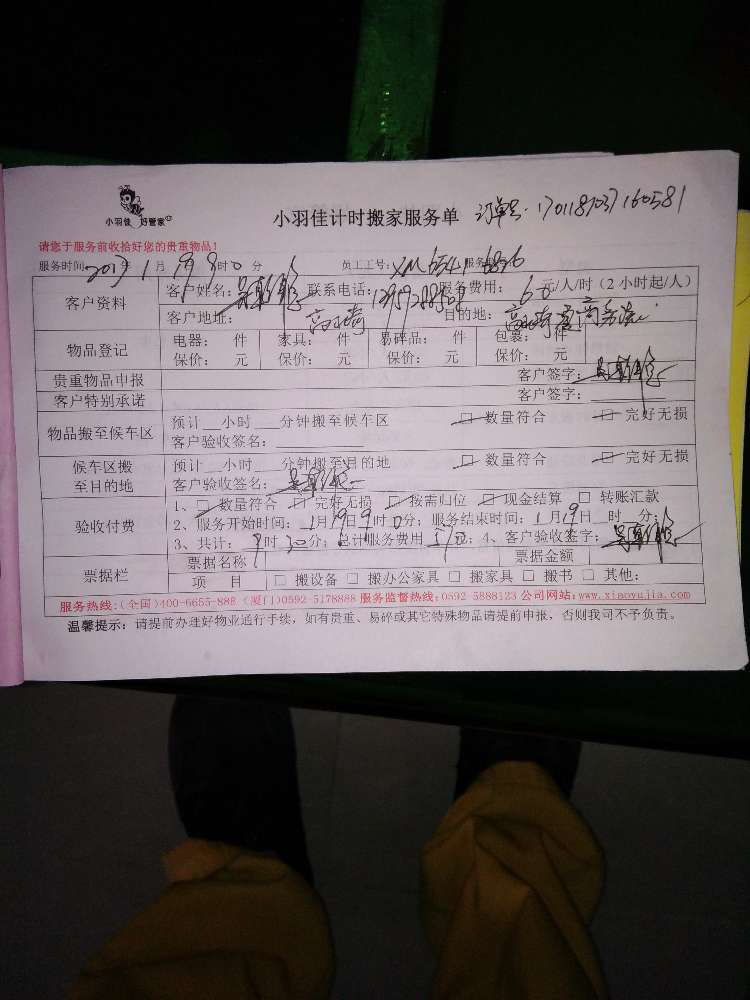 小羽佳 好管家
小羽佳计时搬家服务单 订单号:1701181037160581
请您于服务前收拾好您的贵重物品!
服务时间 2017年1月19 9时0分 员工工号:
客户资料 客户姓名: 联系电话: 服务费用: 60元/人/时(2小时起/人)
客户地址: 高崎 目的地:
物品登记 电器: 件 家具: 件 易碎品: 件 包裹: 件
保价: 元 保价: 元 保价: 元 保价: 元
贵重物品申报 客户签字:
客户特别承诺 客户签字:
物品搬至候车区 预计__小时___分钟搬至候车区 □ 数量符合 □ 完好无损
客户验收签名:
候车区搬至目的地 预计__小时___分钟搬至目的地 □ 数量符合 □ 完好无损
客户验收签名:
验收付费 1、□ 数量符合 □ 完好无损 □ 按需归位 □ 现金结算 □ 转账汇款
2、服务开始时间:1月19日9时0分;服务结束时间:1月19日__时__分;
3、共计: 时30分;总计服务费用 ;4、客户验收签字:
票据栏 票据名称 票据金额
项 目 □ 搬设备 □ 搬办公家具 □ 搬家具 □ 搬书 □ 其他:
服务热线:(全国)400-6655-888 (厦门)0592-5178888 服务监督热线:0592-5888123 公司网站:www.xiaoyujia.com
温馨提示:请提前办理好物业通行手续,如有贵重、易碎或其它特殊物品请提前申报,否则我司不予负责。